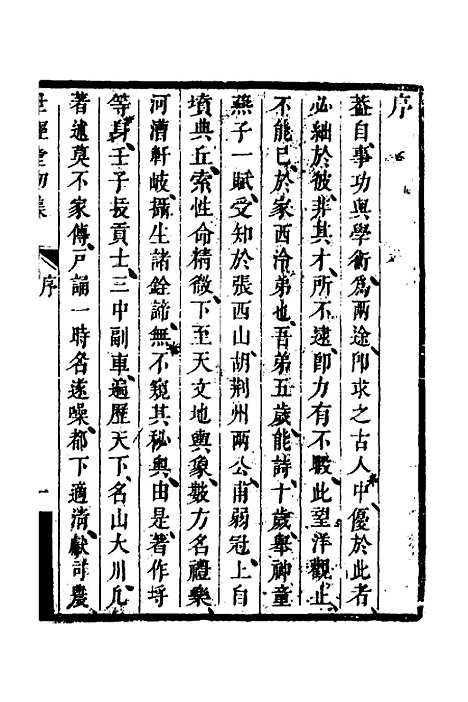 序
葢自事功與學術爲兩途卽求之古人中優於此者
必絀於彼非其才所不逮卽力有不暇此望洋觀止
不能已於家西泠弟也吾弟五歲能詩十歲舉神童
燕子一賦受知於張西山胡荆州兩公甫弱冠上自
墳典丘索性命精微下至天文地輿象數方名禮樂
河漕軒岐攝生諸銓諦無不窺其秘奥由是著作埒
等身壬子拔貢士三中副車遍歷天下名山大川凡
著述莫不家傳戸誦一時名遂噪都下適清獻司農
世經堂初集
序
一